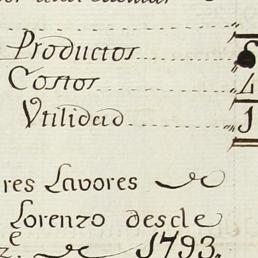 Productos
Costos
Utilidad
res Lavores
Lorenzo desde
1793.